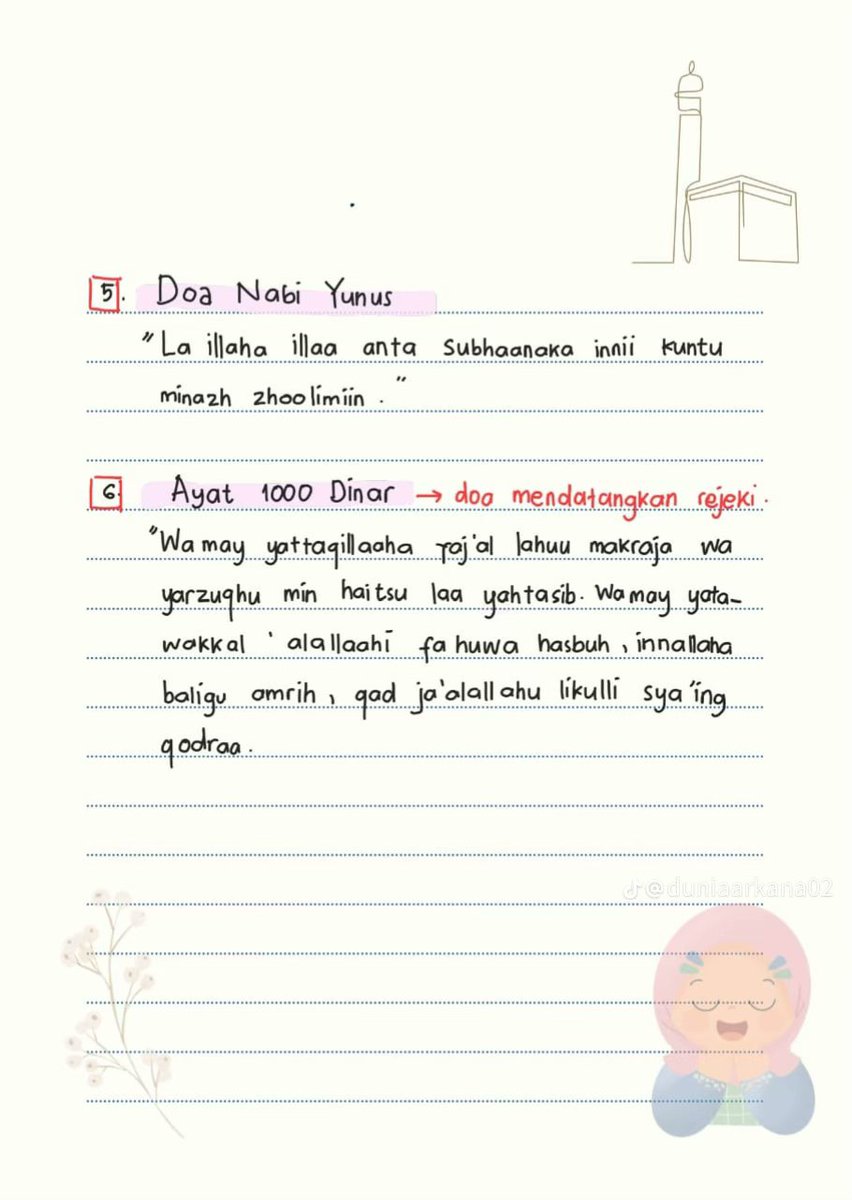 5. Doa Nabi Yunus
"La illaha illaa anta subhaanaka innii kuntu
minazh zhoolimiin."
6. Ayat 1000 Dinar → doa mendatangkan rejeki.
"Wa may yattaqillaaha yaj'al lahuu makraja wa
yarzuqhu min haitsu laa yahtasib. Wa may yata-
wakkal 'alallaahi fa huwa hasbuh, innallaha
baligu amrih, qad ja'alallahu likulli sya'ing
qodraa.
@duniaarkana02